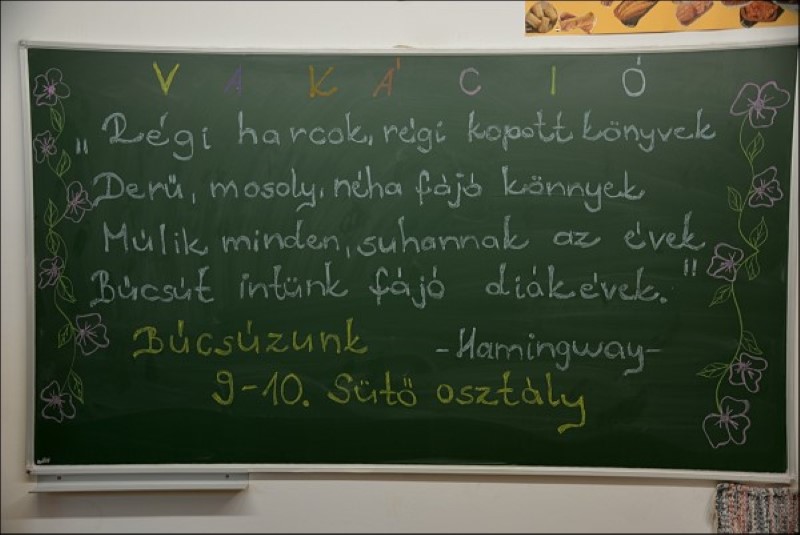 V A K Á C I Ó
„Régi harcok, régi kopott könyvek
Derű, mosoly, néha fájó könnyek
Múlik minden, suhannak az évek
Búcsút intünk fájó diákévek."
Búcsúzunk -Hamingway-
9-10. Sütő osztály